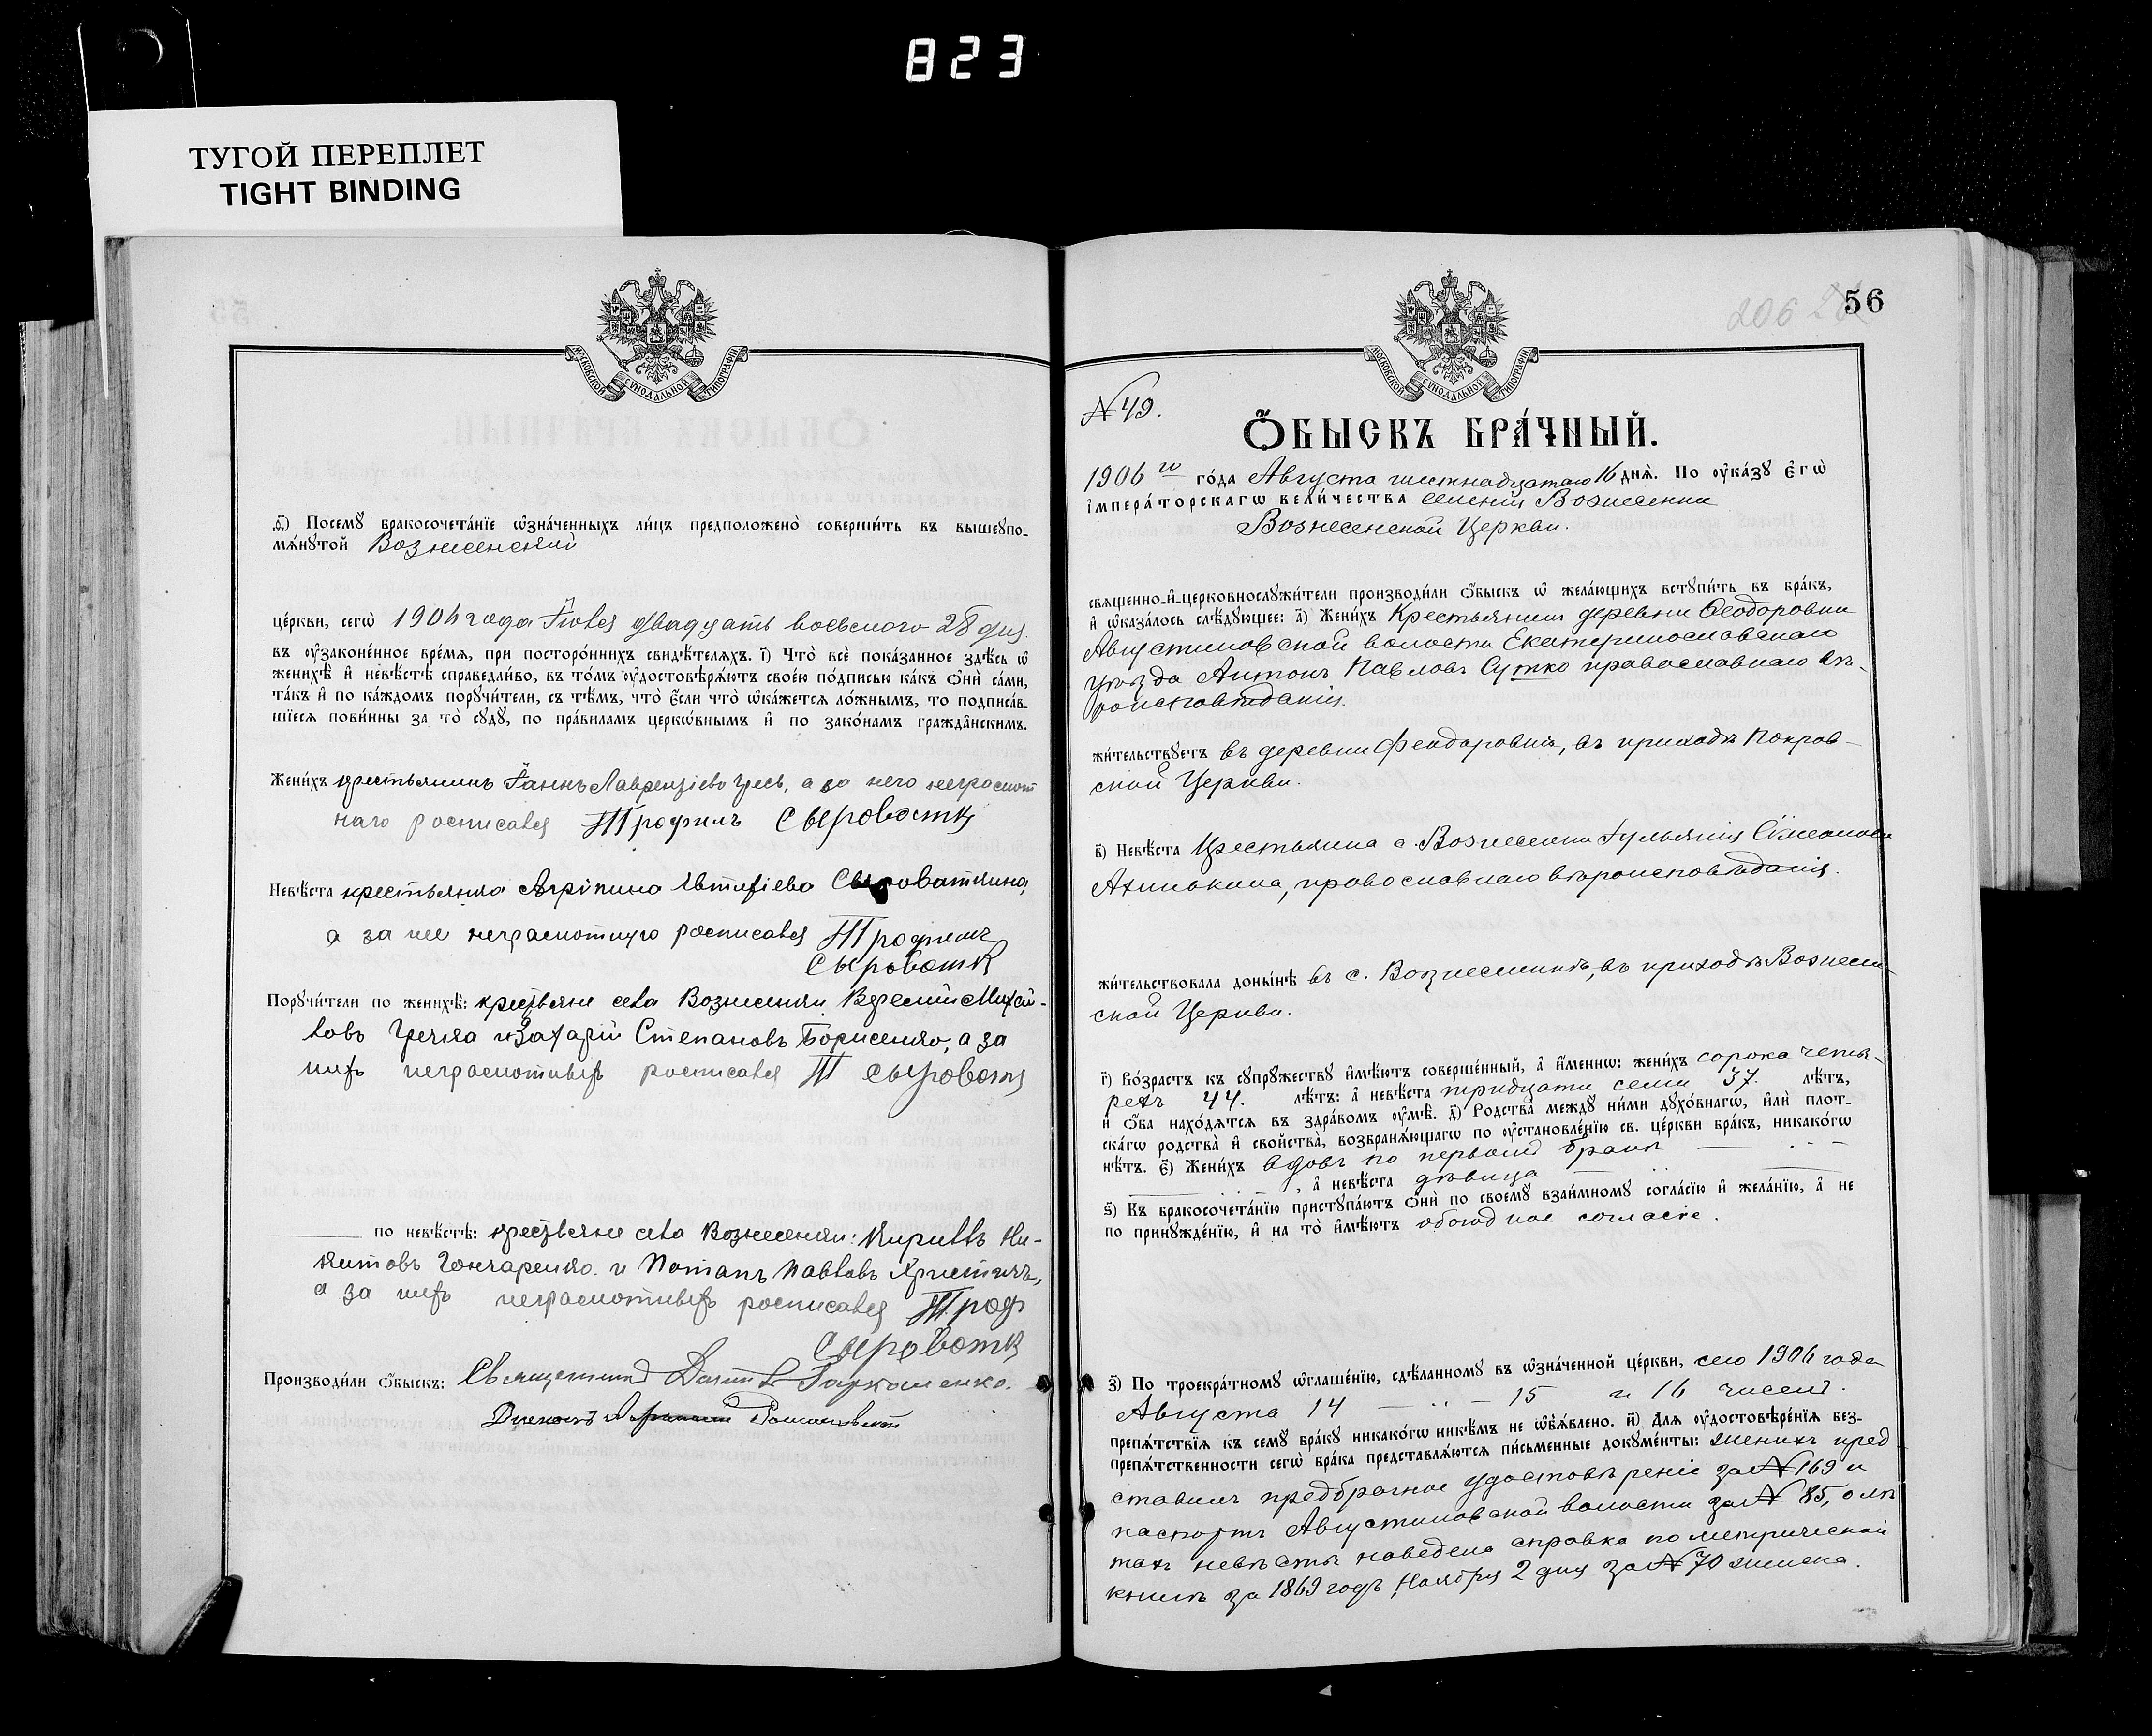 823
ТУГОЙ ПЕРЕПЛЕТ
TIGHT BINDING
МОСКОВСКОЙ СѴНОДАЛЬНОЙ ТИПОГРАФІИ
ѳ҃) Посемꙋ бракосочета́нїе ѡ҆зна́ченныхъ ли́цъ предположено̀ соверши́ть въ вышеꙋпо-
мѧ́нꙋтой Вознесенской
це́ркви, сегѡ̀ 1906 года Іюля двадцать восьмого 28 дня.
въ ᲂу҆зако́ненное вре́мѧ, при посторо́ннихъ свидѣ́телѧхъ. і҃) Что̀ всѐ пока́занное здѣ́сь ѡ҆
женихѣ̀ и҆ невѣ́стѣ справедли́во, въ то́мъ ᲂу҆достовѣрѧ́ютъ свое́ю по́дписью ка́къ ѻ҆нѝ са́ми,
та́къ и҆ по ка́ждомъ порꙋчи́тели, съ тѣ́мъ, что̀ є҆́сли что̀ ѡ҆ка́жетсѧ ло́жнымъ, то подписа́в-
шїесѧ пови́нны за то̀ сꙋдꙋ̀, по пра́виламъ церкѡ́внымъ и҆ по зако́намъ гражда̑нскимъ.
Жени́хъ крестьянинъ Іоаннъ Лаврентіевъ а за него неграмот
наго росписался Трофимъ Сыроватка
Невѣ́ста крестьянка Агрипина Евтихіева Сыроваткина,
а за нее неграмотную росписался Трофимъ
Сыроватка
Порꙋчи́тели по женихѣ̀: крестьяне села Вознесенки Михай-
ловъ Гречка и Захарій Степановъ Борисенко, а за
нихъ неграмотныхъ росписался Т Сыроватка
по невѣ́стѣ: крестьяне села Вознесенки: Кириллъ Ни-
китовъ Гончаренко и Потапъ Павловъ
а за нихъ неграмотныхъ росписался Троф
Сыроватка
Производи́ли ѻ҆́быскъ: Священникъ
56
206
МОСКОВСКОЙ СѴНОДАЛЬНОЙ ТИПОГРАФІИ
№ 49.
Ѻ҆́БЫСКЪ БРА́ЧНЫЙ.
1906 го го́да Августа шестнадцатаго 16 днѧ̀. По ᲂу҆ка́зꙋ є҆гѡ̀
і҆мпера́торскагѡ вели́чества селенія Вознесенки
Вознесенской Церкви.
свѧще́нно-и҆-церковнослꙋжи́тели производи́ли ѻ҆́быскъ ѡ҆ жела́ющихъ встꙋпи́ть въ бра́къ,
и҆ ѡ҆каза́лось слѣ́дꙋющее: а҃) Жени́хъ Крестьянинъ деревни Ѳеодоровки
Августиновской волости Екатеринославскаго
уѣзда Антонъ Павловъ Сутко православнаго вѣ-
роисповѣданія.
жи́тельствꙋетъ въ деревни Феодоровкѣ, въ приходѣ Покров-
ской Церкви.
в҃) Невѣ́ста Крестьянка с. Вознесенки Іульянія Сімеонова
православнаго вѣроисповѣданія.
жи́тельствовала доны́нѣ въ с. Вознесенкѣ, въ приходѣ Вознесен-
ской Церкви.
г҃) Во́зрастъ къ сꙋпрꙋ́жествꙋ и҆мѣ́ютъ соверше́нный, а҆ и҆́меннѡ: жени́хъ сорока четы-
рехъ 44. лѣ́тъ: а҆ невѣ́ста тридцати семи 37. лѣ́тъ,
и҆ ѻ҆́ба нахо́дѧтсѧ въ здра́вомъ ᲂу҆мѣ̀. д҃) Родства̀ междꙋ ни́ми дꙋхо́внагѡ, и҆лѝ плот-
ска́гѡ родства̀ и҆ свойства̀, возбранѧ́ющагѡ по ᲂу҆становле́нїю св. це́ркви бра́къ, никако́гѡ
нѣ́тъ. є҃) Жени́хъ вдовъ по первомъ бракѣ
, а҆ невѣ́ста дѣвица
ѕ҃) Къ бракосочета́нїю пристꙋпа́ютъ ѻ҆нѝ по своемꙋ̀ взаи́мномꙋ согла́сїю и҆ жела́нїю, а҆ не
по принꙋжде́нїю, и҆ на то̀ и҆мѣ́ютъ обоюдное согласіе.
з҃) По троекра́тномꙋ ѡ҆глаше́нїю, сдѣ́ланномꙋ въ ѡ҆зна́ченной це́ркви, сего 1906 года
Августа 14 — " — 15 и 16 чиселъ.
препѧ́тствїѧ къ семꙋ̀ бра́кꙋ никако́гѡ никѣ́мъ не ѡ҆б̾ѧ́влено. и҃) Длѧ ᲂу҆достовѣре́нїѧ без-
препѧ́тственности сегѡ̀ бра́ка представлѧ́ютсѧ пи́сьменные докꙋме́нты: женихъ пред
ставилъ предбрачное удостовѣреніе за № 169 и
паспортъ Августиновской волости за № 85, о лѣ
тахъ невѣсты наведена справка по метрической
книгѣ за 1869 годъ Ноября 2 дня за № 70 женска.